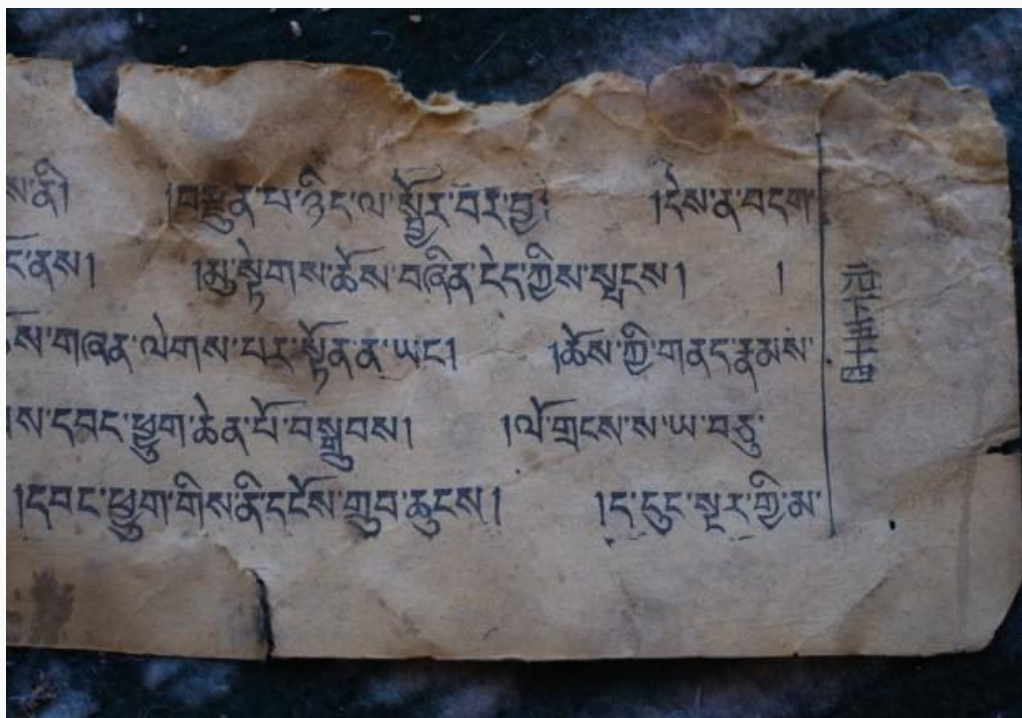 ས་ནི། །བརྫུན་པ་ཉིད་ལ་སྦྱོར་བར་བྱ། །དེས་ན་བདག་
ནས། །མུ་སྟེགས་ཆོས་བཞིན་ངེད་ཀྱིས་སྤངས། །
ཆོས་གཞན་ལེགས་པར་སྟོན་ན་ཡང་། །ཆོས་ཀྱི་གནད་རྣམས་
ས་དབང་ཕྱུག་ཆེན་པོ་བསྒྲུབས། །ལོ་གྲངས་ས་ཡ་བཅུ་
།དབང་ཕྱུག་གིས་ནི་དངོས་གྲུབ་ཆུངས། །ད་དུང་སྔར་གྱི་མ་